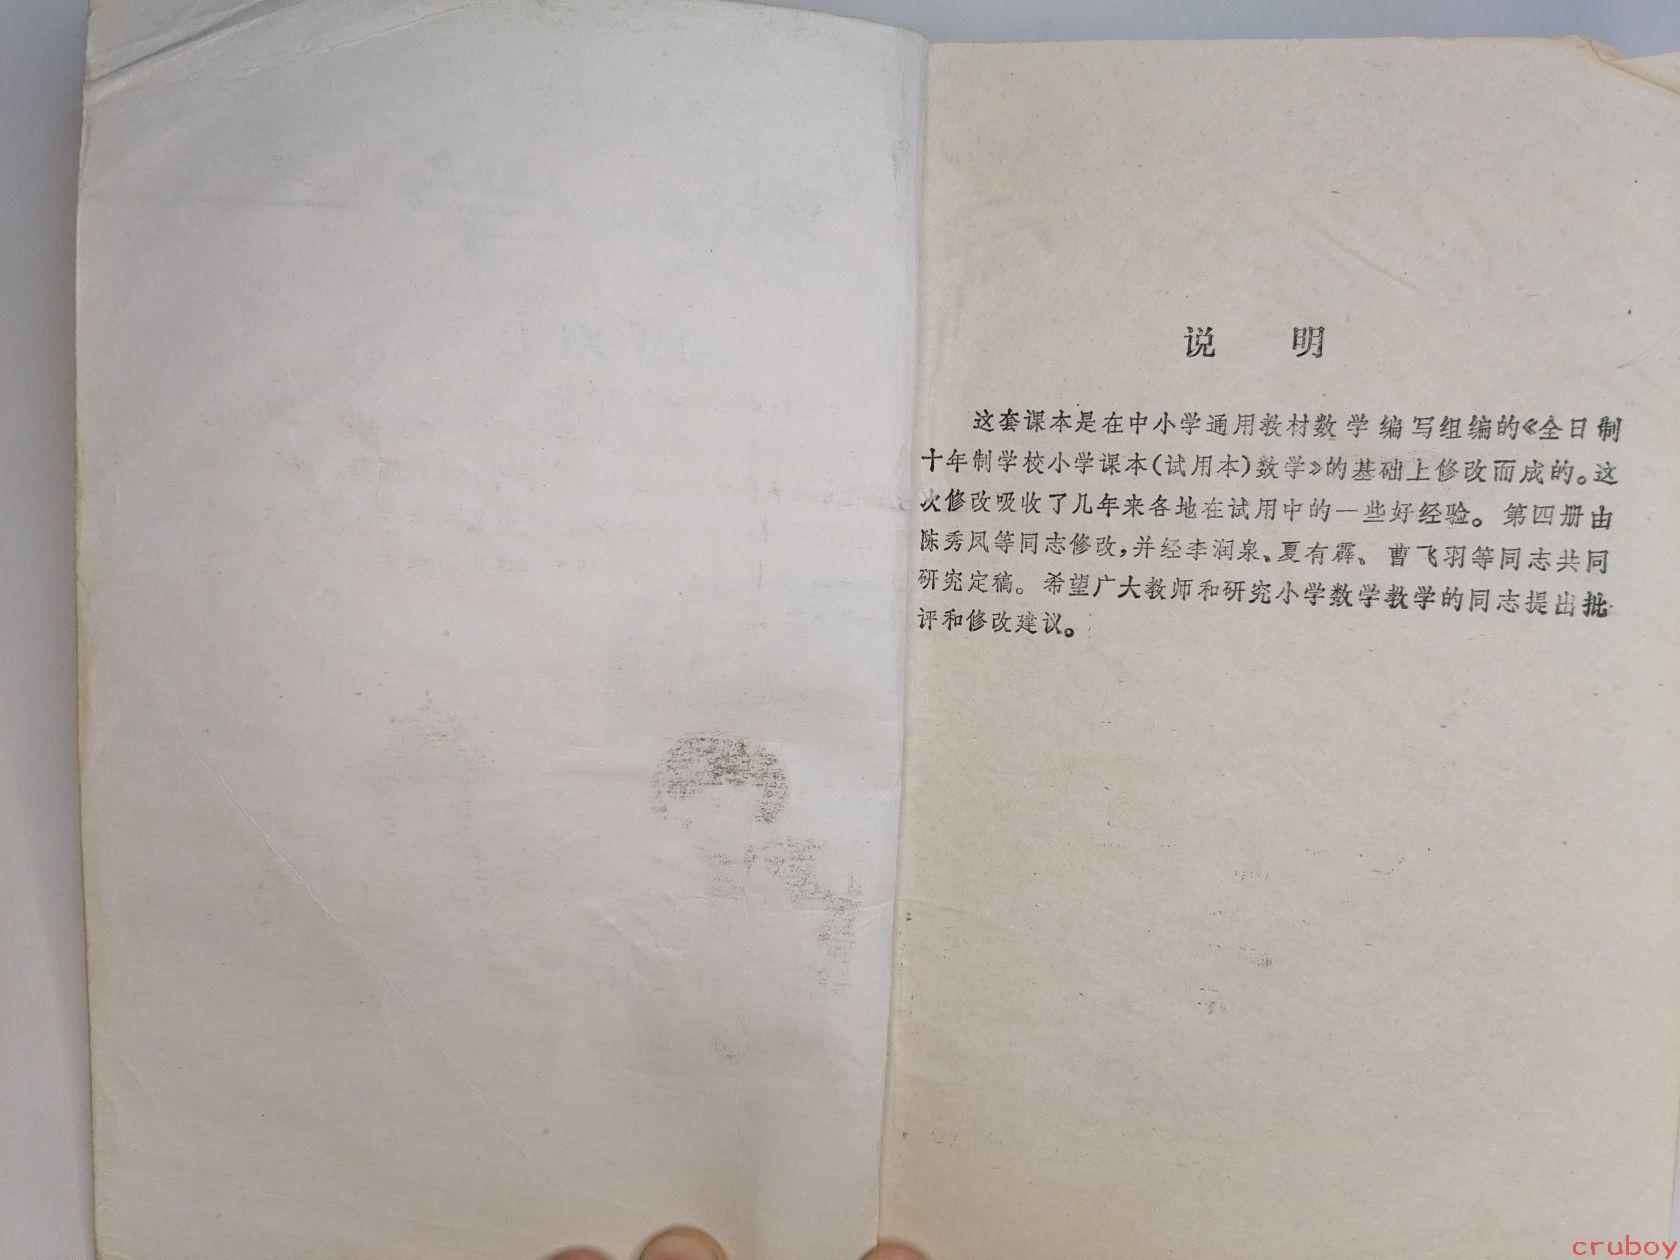 说 明
这套课本是在中小学通用教材数学编写组编的《全日制
十年制学校小学课本(试用本)数学》的基础上修改而成的。这
次修改吸收了几年来各地在试用中的一些好经验。第四册由
陈秀凤等同志修改，并经李润泉、夏有霖、曹飞羽等同志共同
研究定稿。希望广大教师和研究小学数学教学的同志提出批
评和修改建议。
cruboy